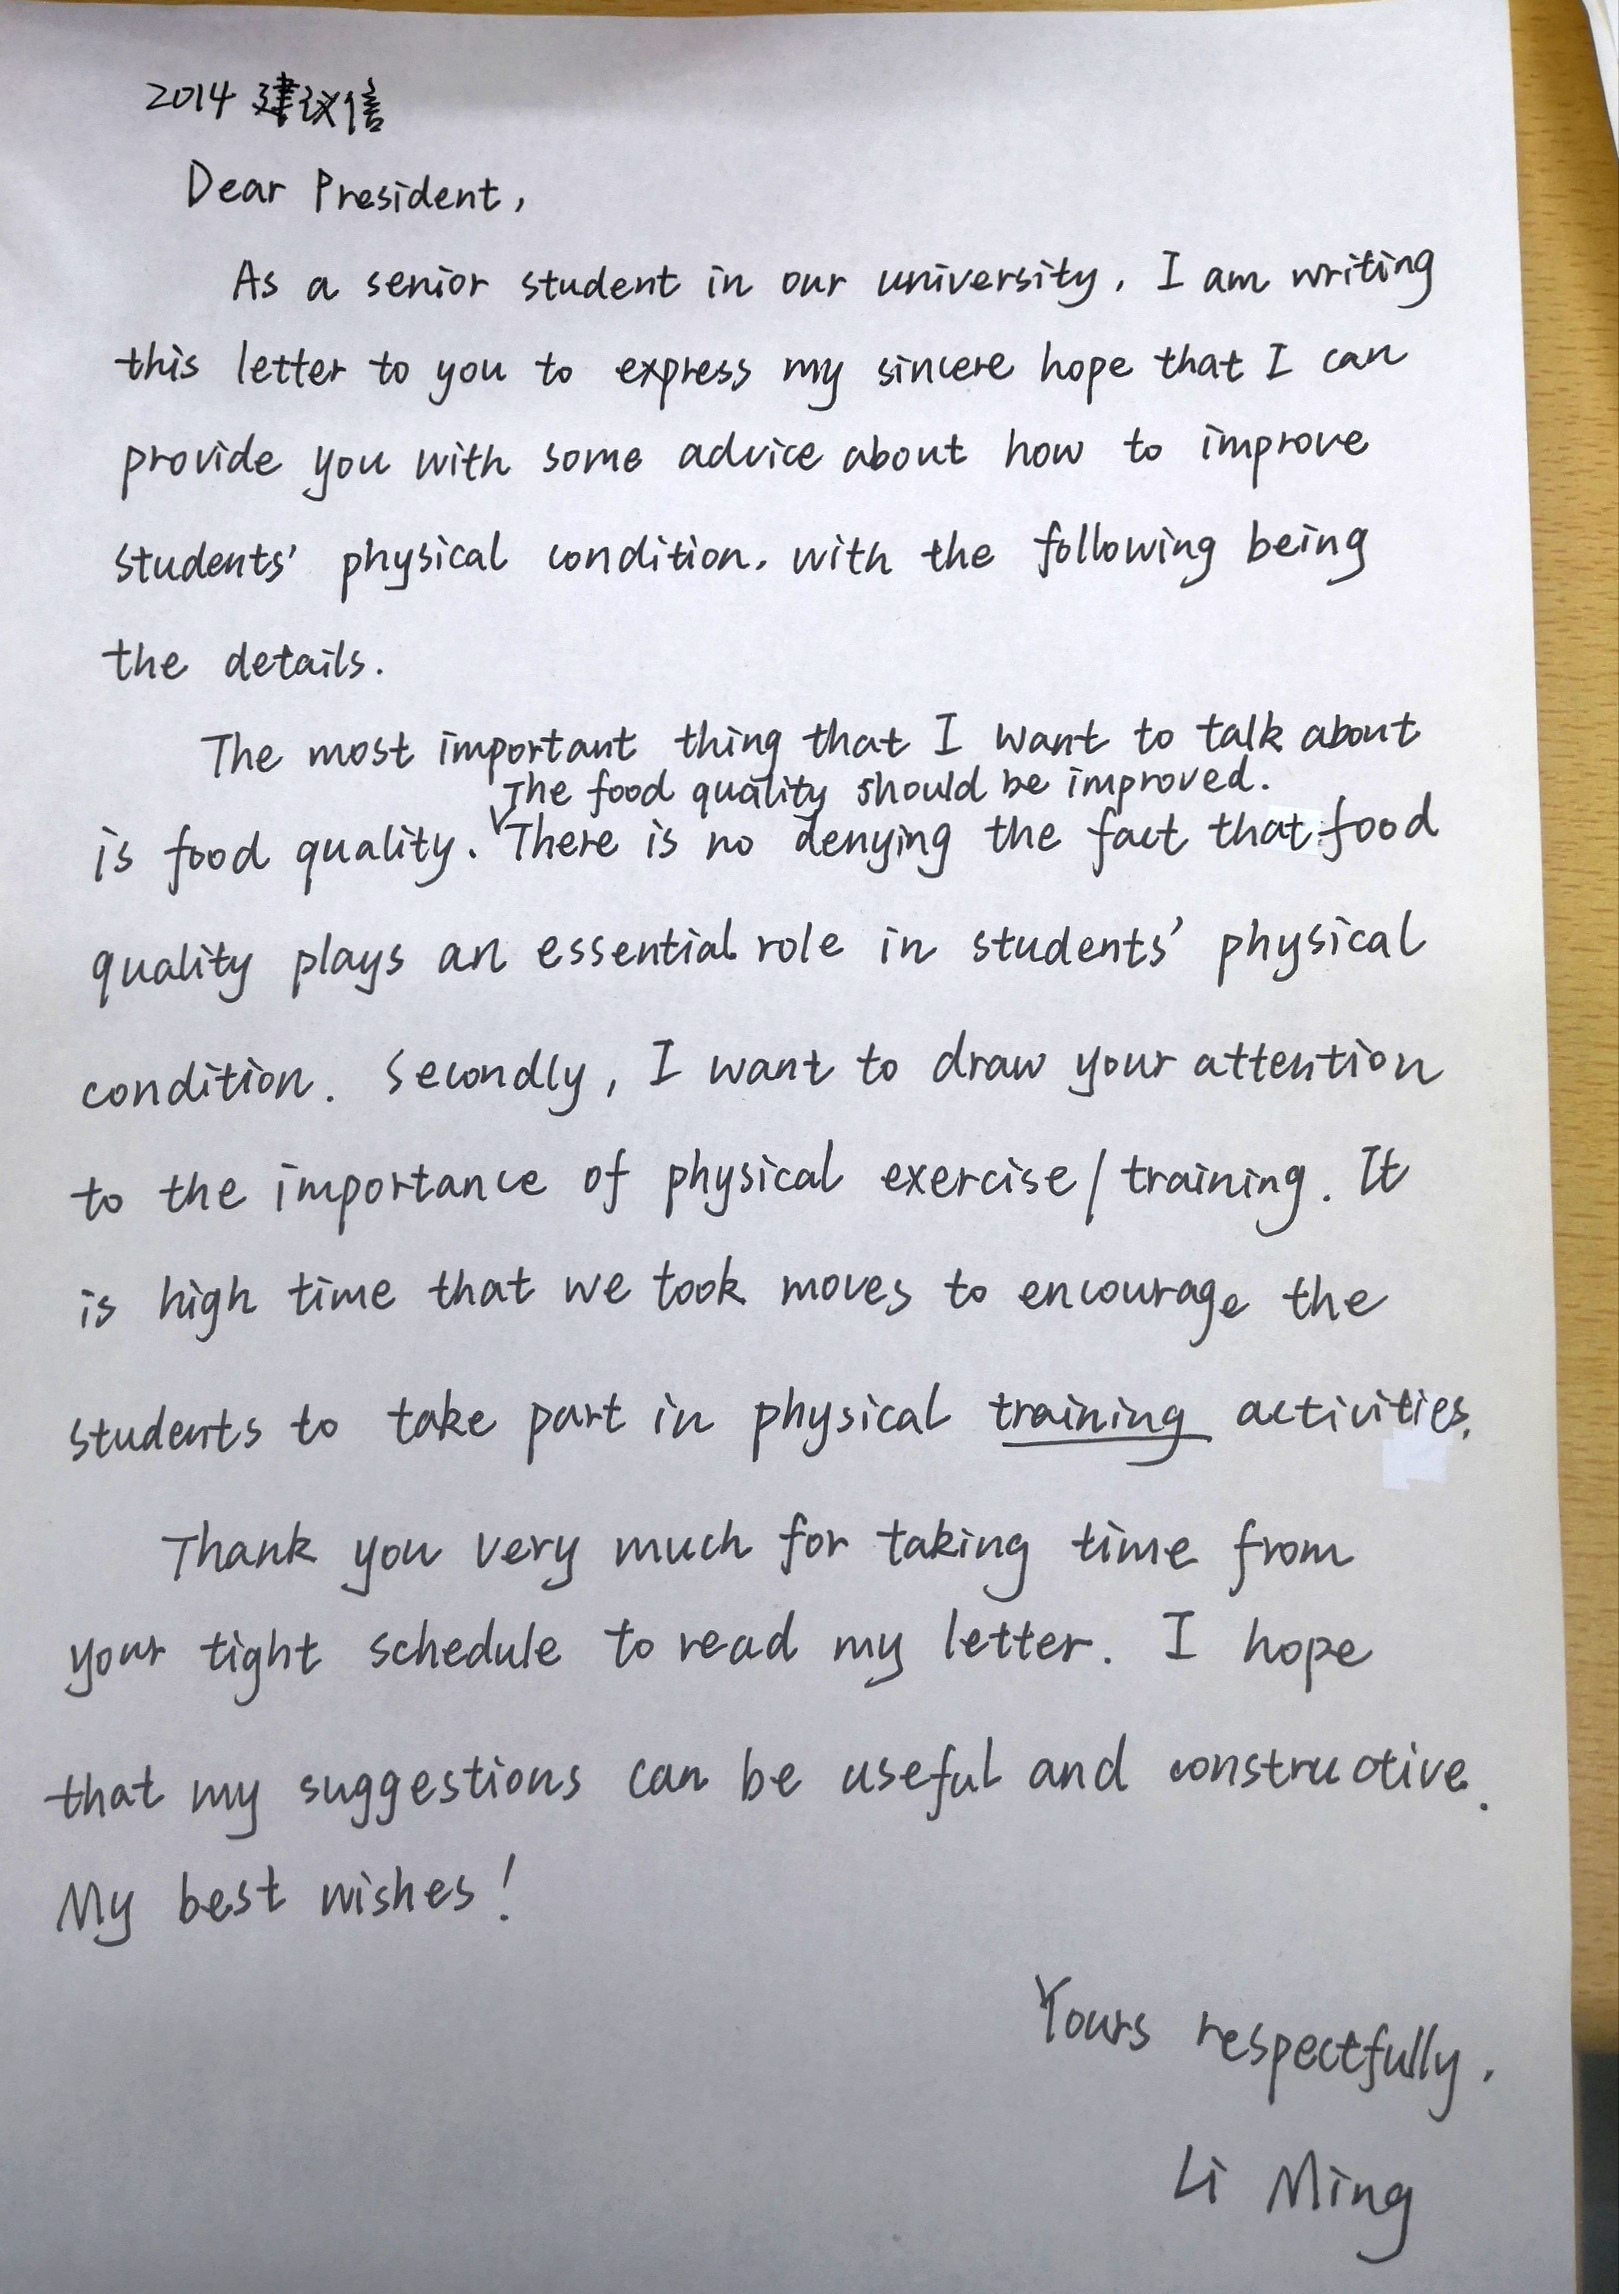 2014 建议信
Dear President,
As a senior student in our university, I am writing
this letter to you to express my sincere hope that I can
provide you with some advice about how to improve
students' physical condition, with the following being
the details.
The most important thing that I want to talk about
The food quality should be improved.
is food quality. There is no denying the fact that food
quality plays an essential role in students' physical
condition. Secondly, I want to draw your attention
to the importance of physical exercise/training. It
is high time that we took moves to encourage the
students to take part in physical training activities.
Thank you very much for taking time from
your tight schedule to read my letter. I hope
that my suggestions can be useful and constructive.
My best wishes!
Yours respectfully,
Li Ming